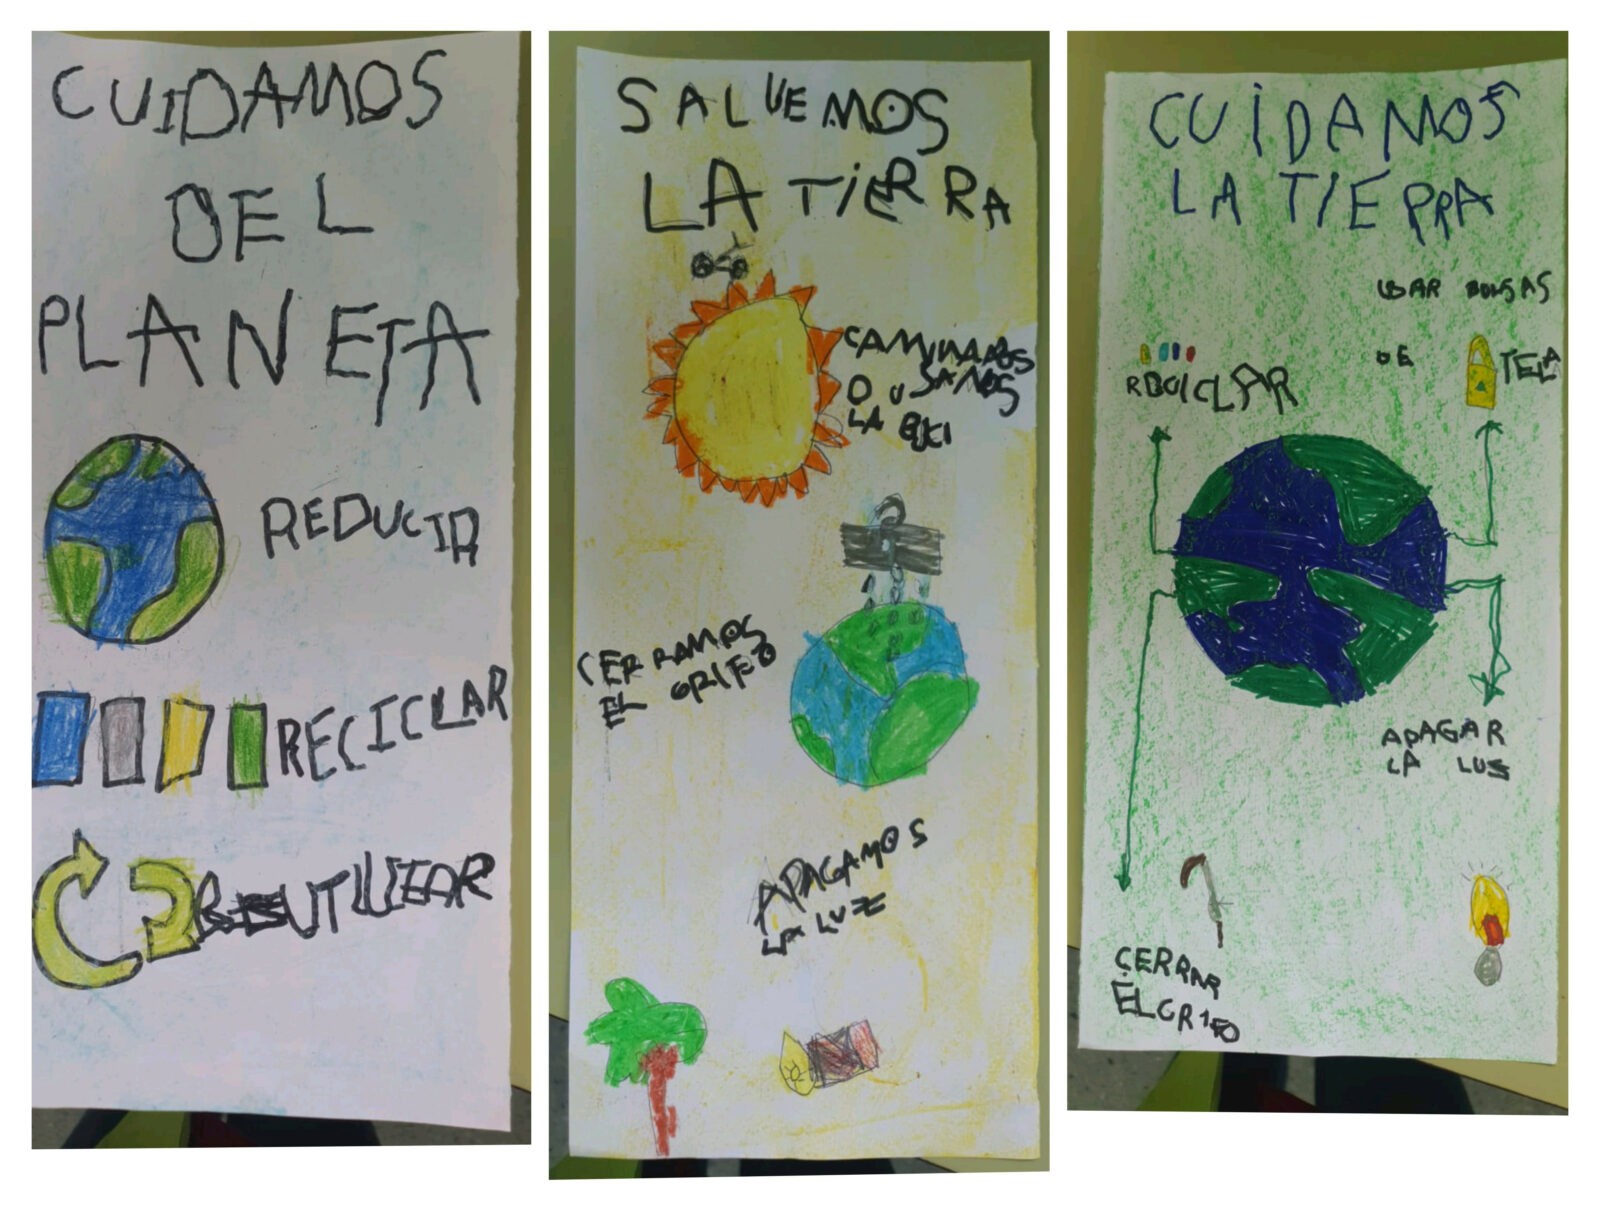 CUIDAMOS
DEL
PLANETA
REDUCIR
RECICLAR
REUTILIZAR
SALVEMOS
LA TIERRA
CAMINAMOS
O USAMOS
LA BICI
CERRAMOS
EL GRIFO
APAGAMOS
LA LUZ
CUIDAMOS
LA TIERRA
USAR BOLSAS
DE TELA
RECICLAR
APAGAR
LA LUS
CERRAR
EL GRIFO